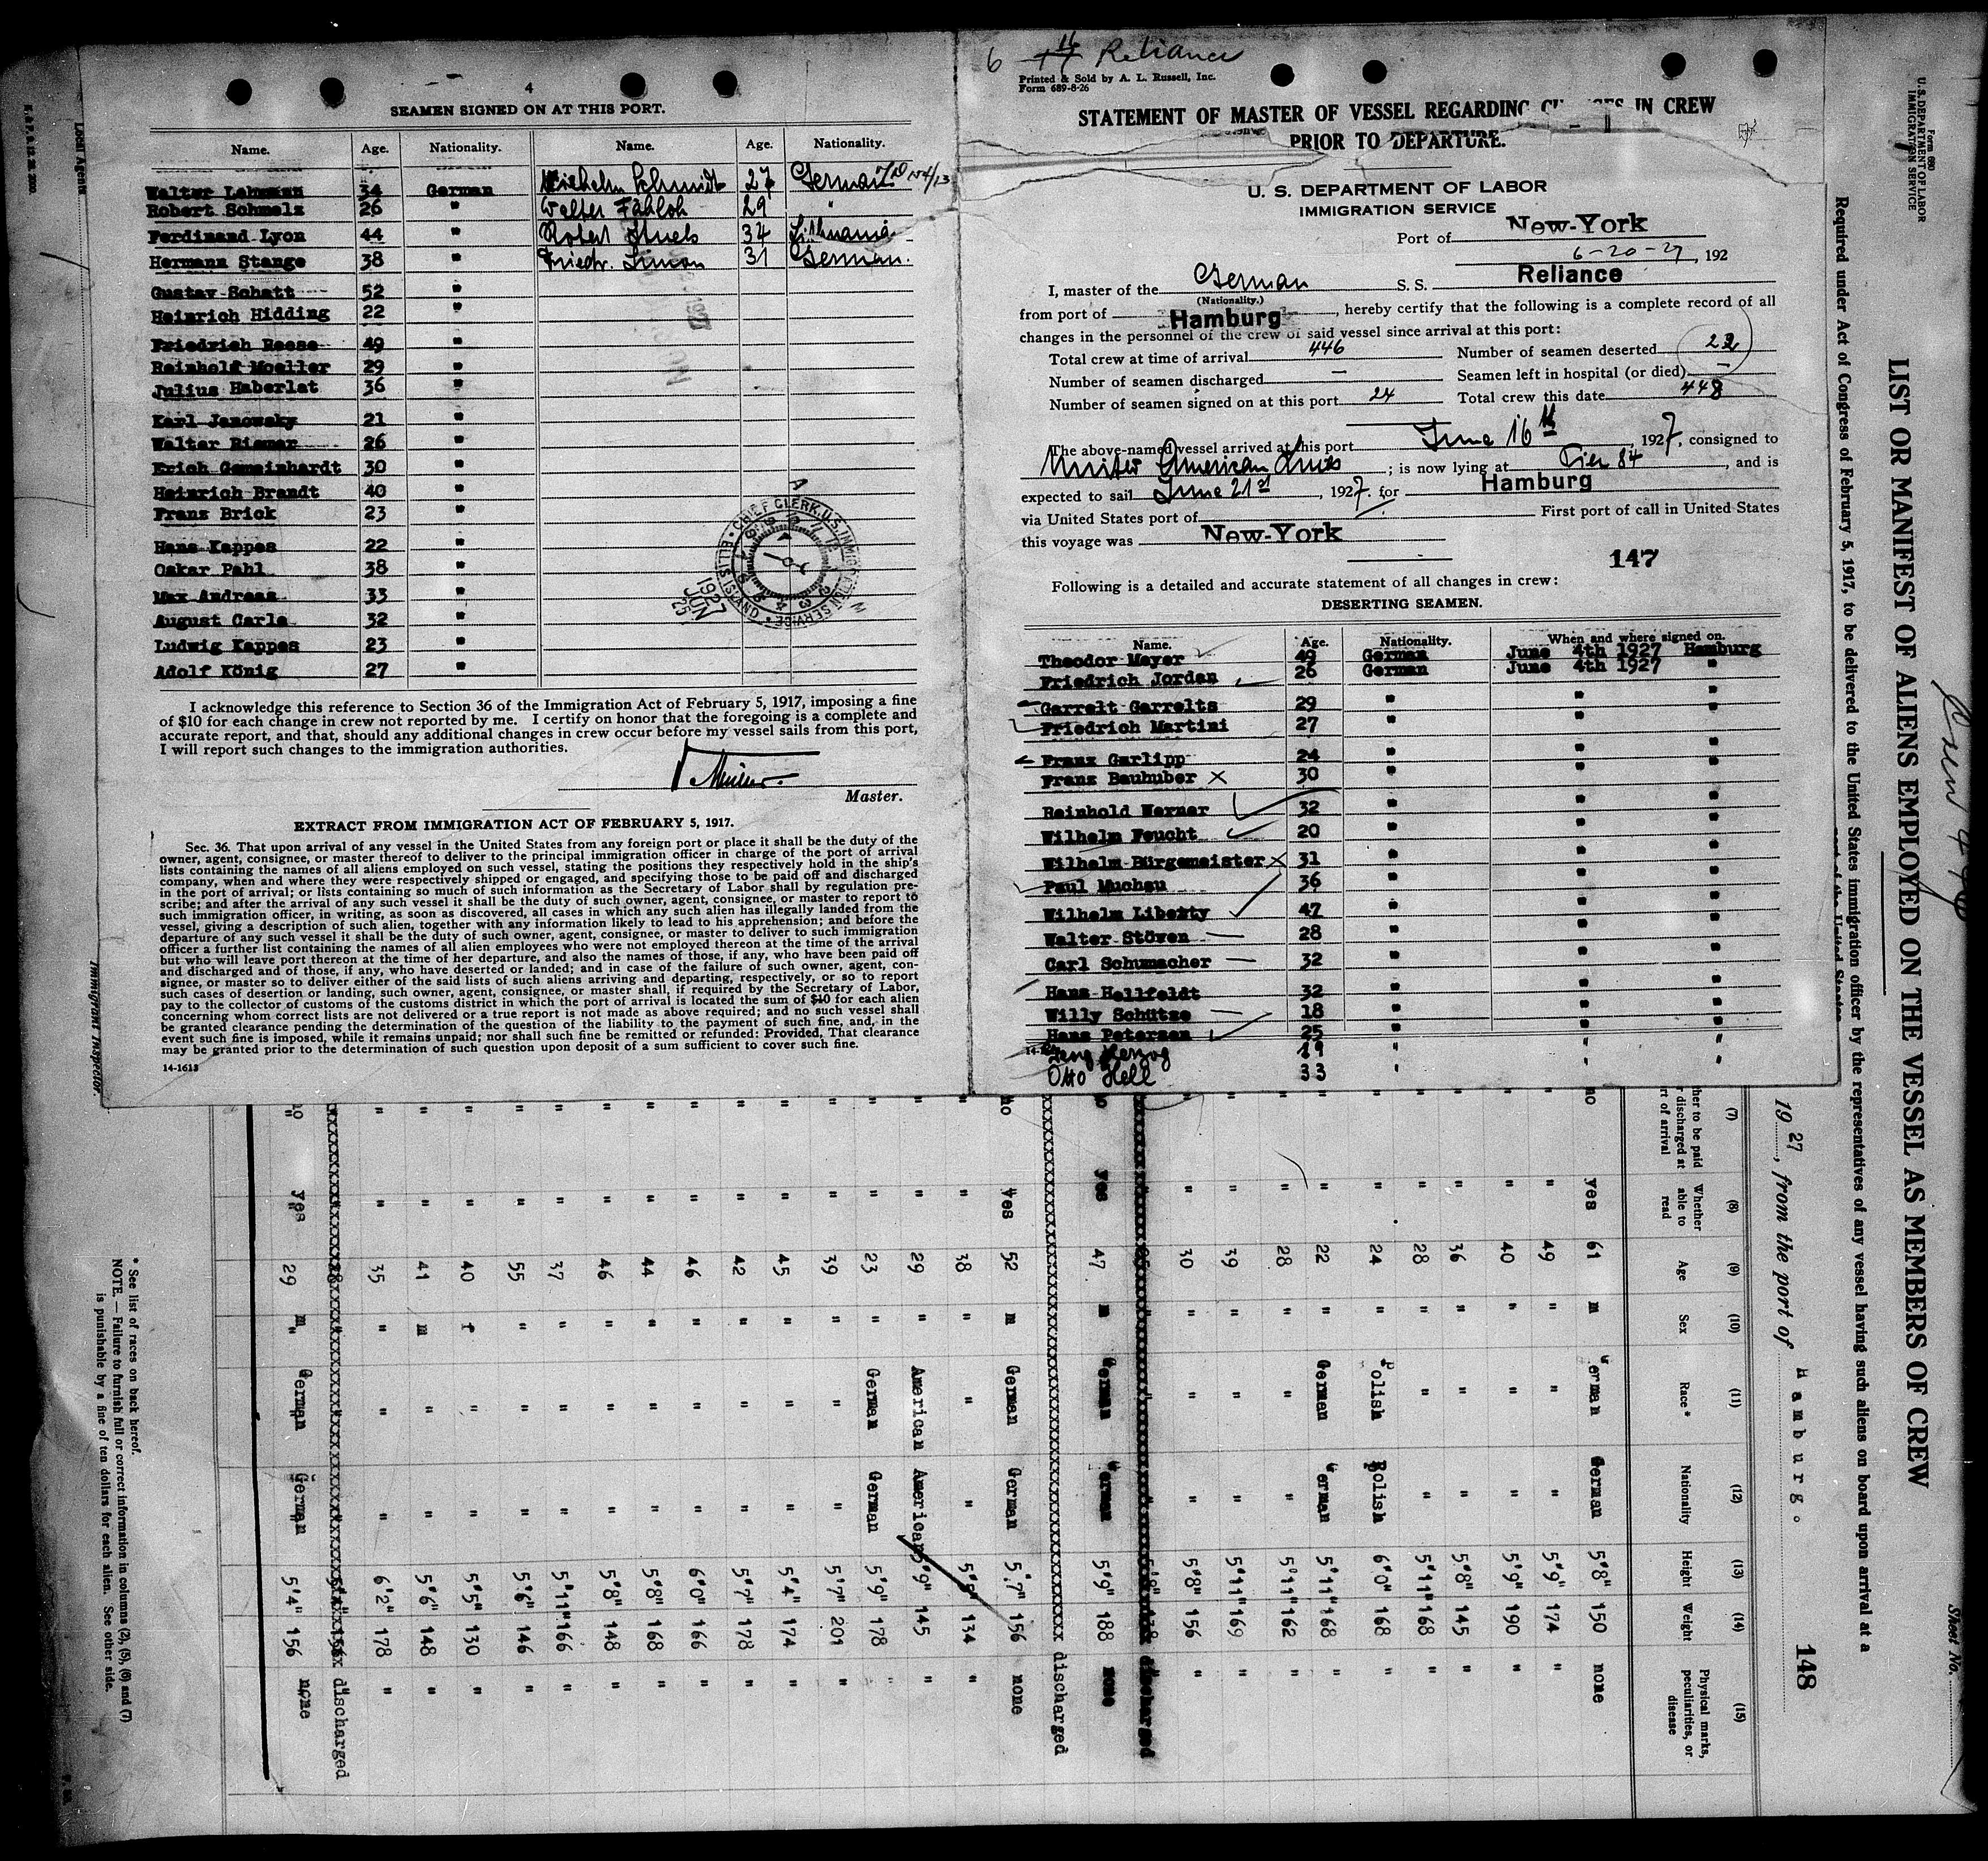 4
SEAMEN SIGNED ON AT THIS PORT.
Name. Age. Nationality. Name. Age. Nationality.
Walter Lehmann 34 German Wilhelm Schmidt 27 German
Robert Schmelz 26 " Walter Fahloh 29 "
Ferdinand Lyon 44 " Robert 34 Lithuania
Hermann Stange 38 " Friedr. Simon 31 German.
Gustav Schatt 52 "
Heinrich Hidding 22 "
Friedrich Reese 49 "
Reinhold Moeller 29 "
Julius Haberlat 36 "
Karl Janowsky 21 "
Walter Riemer 26 "
Erich Gemeinhardt 30 "
Heinrich Brandt 40 "
Franz Brick 23 "
Hans Kappes 22 "
Oskar Pahl 38 "
Max Andreas 33 "
August Carls 32 "
Ludwig Kappes 23 "
Adolf König 27 "
CHIEF CLERK, U.S. IMMIGRATION SERVICE
ELLIS ISLAND
1927 JUN 25
I acknowledge this reference to Section 36 of the Immigration Act of February 5, 1917, imposing a fine
of $10 for each change in crew not reported by me. I certify on honor that the foregoing is a complete and
accurate report, and that, should any additional changes in crew occur before my vessel sails from this port,
I will report such changes to the immigration authorities.
Master.
EXTRACT FROM IMMIGRATION ACT OF FEBRUARY 5, 1917.
Sec. 36. That upon arrival of any vessel in the United States from any foreign port or place it shall be the duty of the
owner, agent, consignee, or master thereof to deliver to the principal immigration officer in charge of the port of arrival
lists containing the names of all aliens employed on such vessel, stating the positions they respectively hold in the ship's
company, when and where they were respectively shipped or engaged, and specifying those to be paid off and discharged
in the port of arrival; or lists containing so much of such information as the Secretary of Labor shall by regulation pre-
scribe; and after the arrival of any such vessel it shall be the duty of such owner, agent, consignee, or master to report to
such immigration officer, in writing, as soon as discovered, all cases in which any such alien has illegally landed from the
vessel, giving a description of such alien, together with any information likely to lead to his apprehension; and before the
departure of any such vessel it shall be the duty of such owner, agent, consignee, or master to deliver to such immigration
officer a further list containing the names of all alien employees who were not employed thereon at the time of the arrival
but who will leave port thereon at the time of her departure, and also the names of those, if any, who have been paid off
and discharged and of those, if any, who have deserted or landed; and in case of the failure of such owner, agent, con-
signee, or master so to deliver either of the said lists of such aliens arriving and departing, respectively, or so to report
such cases of desertion or landing, such owner, agent, consignee, or master shall, if required by the Secretary of Labor,
pay to the collector of customs of the customs district in which the port of arrival is located the sum of $10 for each alien
concerning whom correct lists are not delivered or a true report is not made as above required; and no such vessel shall
be granted clearance pending the determination of the question of the liability to the payment of such fine, and, in the
event such fine is imposed, while it remains unpaid; nor shall such fine be remitted or refunded: Provided, That clearance
may be granted prior to the determination of such question upon deposit of a sum sufficient to cover such fine.
14-1613
6 17 16 Reliance
Printed & Sold by A. L. Russell, Inc.
Form 689-8-26
STATEMENT OF MASTER OF VESSEL REGARDING IN CREW
PRIOR TO DEPARTURE.
U. S. DEPARTMENT OF LABOR
IMMIGRATION SERVICE
Port of New-York
6-20-27, 192
I, master of the German S. S. Reliance
(Nationality.)
from port of Hamburg, hereby certify that the following is a complete record of all
changes in the personnel of the crew of said vessel since arrival at this port:
Total crew at time of arrival 446 Number of seamen deserted 22
Number of seamen discharged — Seamen left in hospital (or died) —
Number of seamen signed on at this port 24 Total crew this date 448
The above-named vessel arrived at this port June 16th, 1927, consigned to
United American Lines; is now lying at Pier 84, and is
expected to sail June 21st, 1927. for Hamburg
via United States port of First port of call in United States
this voyage was New-York
147
Following is a detailed and accurate statement of all changes in crew:
DESERTING SEAMEN.
Name. Age. Nationality. When and where signed on.
Theodor Meyer 49 German June 4th 1927 Hamburg
Friedrich Jordan 26 German June 4th 1927 "
Garrelt Garrelts 29 " " "
Friedrich Martini 27 " " "
Franz Garlipp 24 " " "
Franz Bauhuber 30 " " "
Reinhold Werner 32 " " "
Wilhelm Feucht 20 " " "
Wilhelm Bürgemeister 31 " " "
Paul Muchau 36 " " "
Wilhelm Liberty 47 " " "
Walter Stöven 28 " " "
Carl Schumacher 32 " " "
Hans Hellfeldt 32 " " "
Willy Schütze 18 " " "
Hans Petersen 25 " " "
Herzog 19 " " "
Otto Hell 33 " " "
Form 680
U. S. DEPARTMENT OF LABOR
IMMIGRATION SERVICE
Sheet No.
LIST OR MANIFEST OF ALIENS EMPLOYED ON THE VESSEL AS MEMBERS OF CREW
Required under Act of Congress of February 5, 1917, to be delivered to the United States immigration officer by the representatives of any vessel having such aliens on board upon arrival at a
port of the United States
1927, from the port of Hamburg.
148
(7) (8) (9) (10) (11) (12) (13) (14) (15)
Whether able to read Age Sex Race* Nationality Height Weight Physical marks, peculiarities, or disease
no yes 61 m German German 5'8" 150 none
" " 49 " " " 5'9" 174 "
" " 40 " " " 5'9" 190 "
" " 36 " " " 5'8" 145 "
" " 28 " " " 5'11" 168 "
" " 24 " Polish Polish 6'0" 168 "
" " 22 " German German 5'11" 168 "
" " 28 " " " 5'11" 162 "
" " 39 " " " 5'11" 169 "
" " 30 " " " 5'8" 156 "
discharged
yes 47 m German German 5'9" 188 none
discharged
no yes 52 m German German 5'7" 156 none
" " 38 " " " 134 "
" " 29 " American American 5'9" 145 "
" " 23 " German German 5'9" 178 "
" " 39 " " " 5'7" 201 "
" " 45 " " " 5'4" 174 "
" " 42 " " " 5'7" 178 "
" " 46 " " " 6'0" 166 "
" " 44 " " " 5'8" 168 "
" " 46 " " " 5'8" 148 "
" " 37 " " " 5'11" 166 "
" " 55 " " " 5'6" 146 "
" " 40 f " " 5'5" 130 "
" " 41 m " " 5'6" 148 "
" " 35 " " " 6'2" 178 "
discharged
no yes 29 m German German 5'4" 156 none
* See list of races on back hereof.
NOTE.—Failure to furnish full or correct information in columns (2), (5), (6) and (7)
is punishable by a fine of ten dollars for each alien. See other side.
Local Agents
Immigrant Inspector.